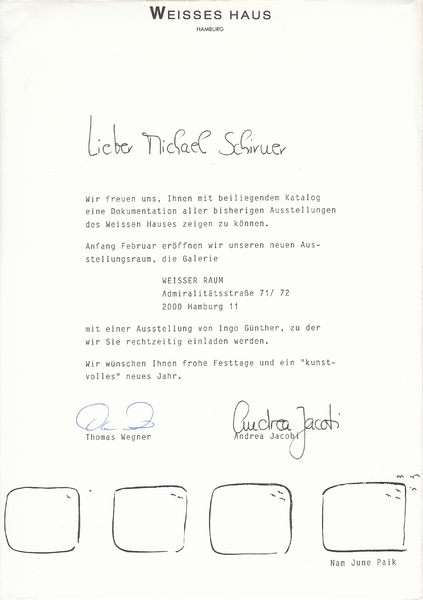 WEISSES HAUS
HAMBURG
Lieber Michael Schirner
Wir freuen uns, Ihnen mit beiliegendem Katalog
eine Dokumentation aller bisherigen Ausstellungen
des Weissen Hauses zeigen zu können.
Anfang Februar eröffnen wir unseren neuen Aus-
stellungsraum, die Galerie
WEISSER RAUM
Admiralitätsstraße 71/ 72
2000 Hamburg 11
mit einer Ausstellung von Ingo Günther, zu der
wir Sie rechtzeitig einladen werden.
Wir wünschen Ihnen frohe Festtage und ein "kunst-
volles" neues Jahr.
Andrea Jacobi
Thomas Wegner Andrea Jacobi
Nam June Paik